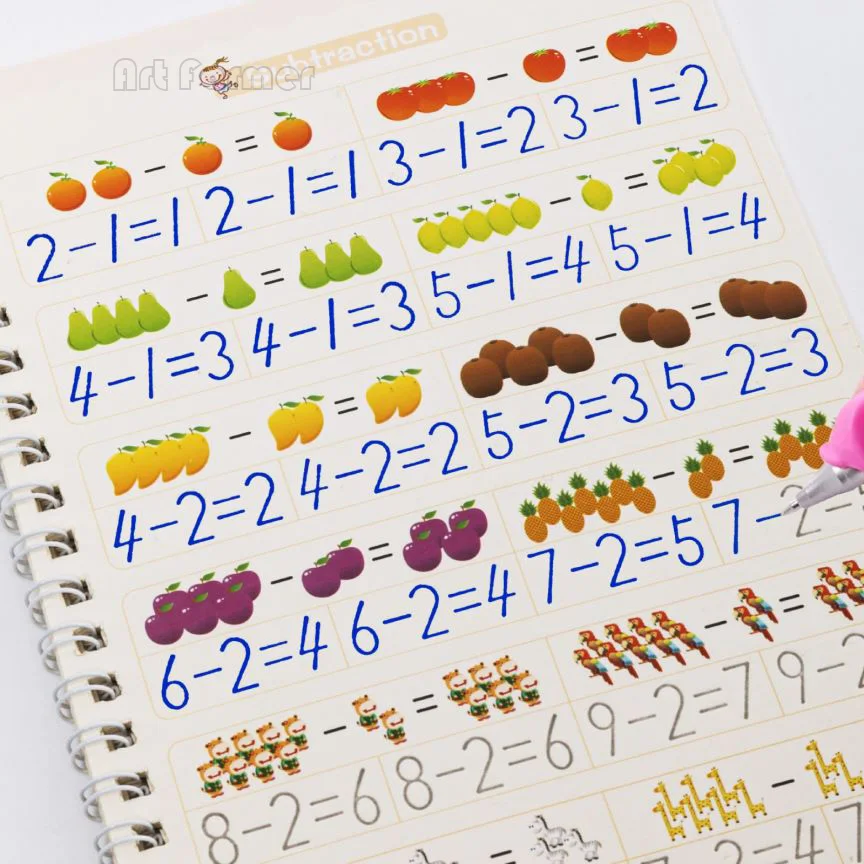 Art Former
subtraction
− = − =
2−1=1 2−1=1 3−1=2 3−1=2
− = − =
4−1=3 4−1=3 5−1=4 5−1=4
− = − =
4−2=2 4−2=2 5−2=3 5−2=3
− = − =
6−2=4 6−2=4 7−2=5 7−2
− = − =
8−2=6 8−2=6 9−2=7 9−2
= −